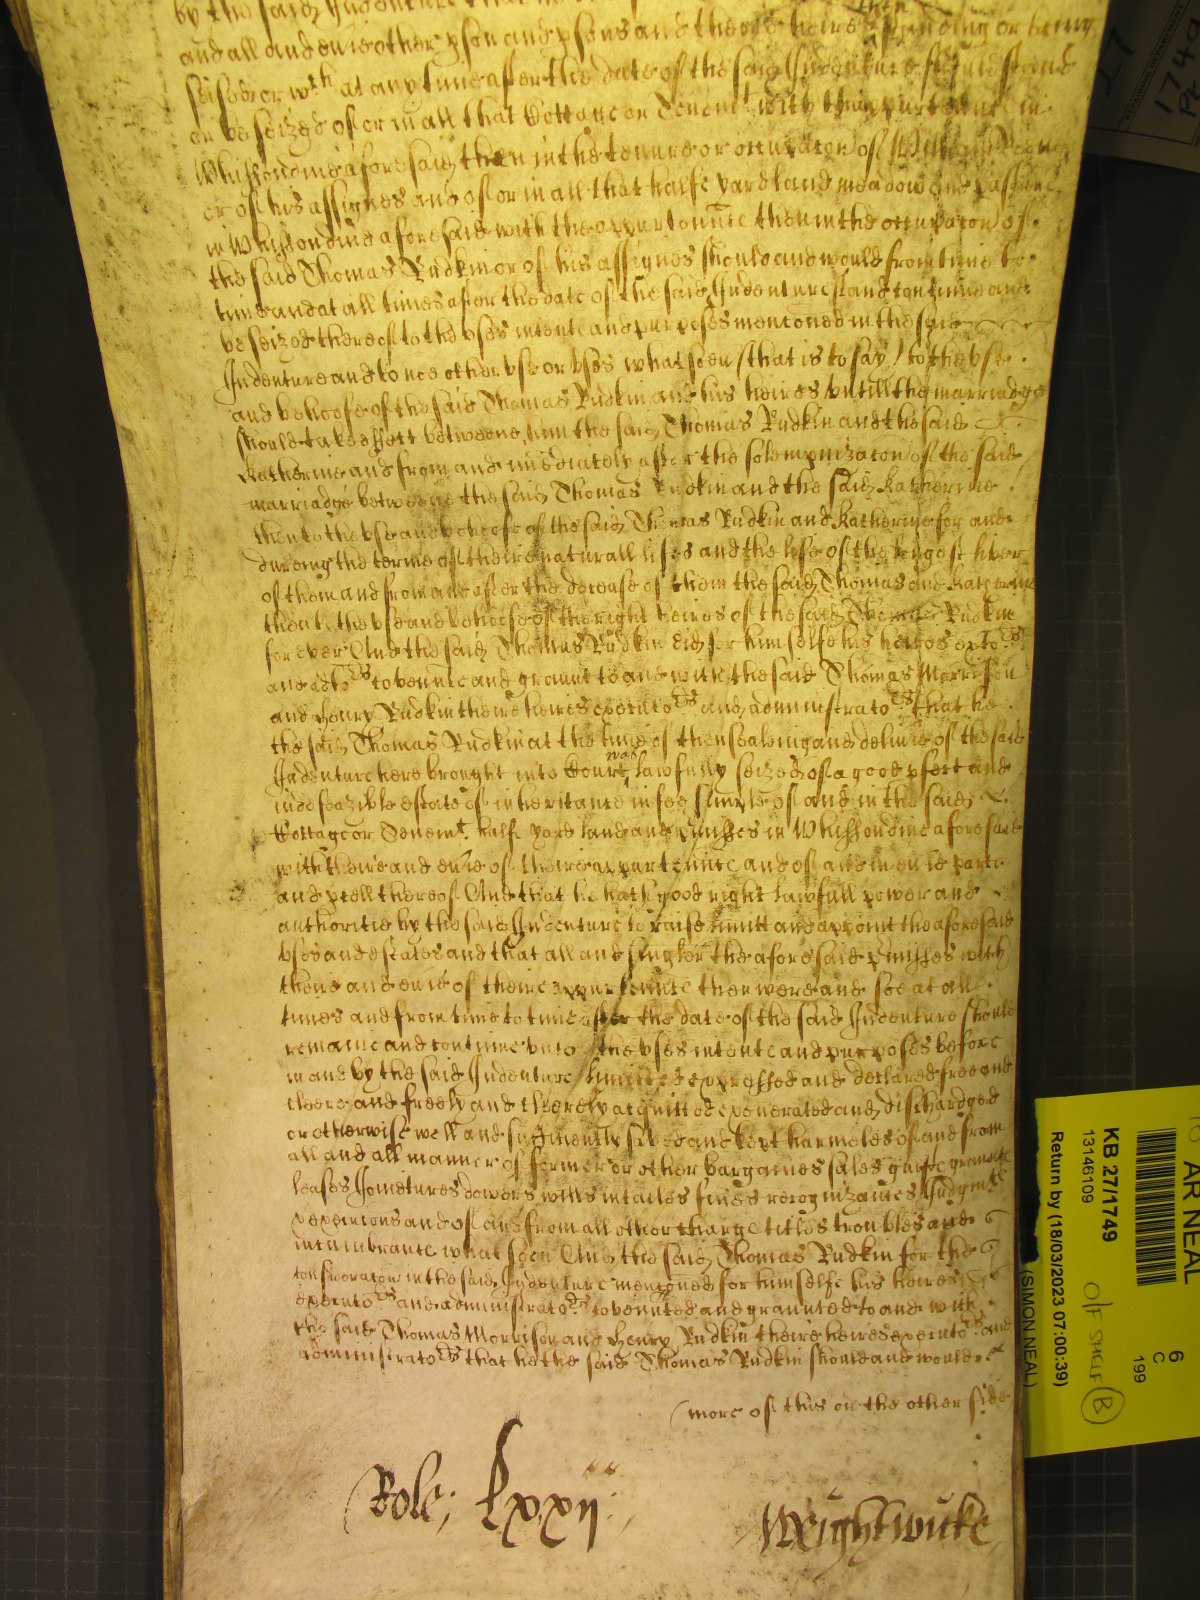 by the said Indenture that he
and all and evie other pson and psons and theire heires then standing or being
seised or wch at any time after the date of the said Indenture should stand
or be seized of or in all that Cottage or Tenemt with thappurtennce in
Whissondine aforesaid then in the tenure or occupacon of William
or of his assignes and of or in all that halfe yard land meadow and pasture
in Whissondine aforesaid with the appurtennce then in the occupacon of
the said Thomas Rudkin or of his assignes should and would from time to
time and at all times after the date of the said Indenture stand continue and
be seized thereof to the vses intents and purposes menconed in the said
Indenture and to noe other vse or vses whatsoeu (that is to say) to the vse
and behoofe of the said Thomas Rudkin and his heires vntill the marriadge
should take effect betweene him the said Thomas Rudkin and the said
Katherine and from and imediately after the solempnizacon of the said
marriadge betweene the said Thomas Rudkin and the said Katherine
then to the vse and behoofe of the said Thomas Rudkin and Katherine for and
dureing the terme of theire naturall lifes and the life of the longest liver
of them and from and after the decease of them the said Thomas and Katherine
then to the vse and behoofe of the right heires of the said Thomas Rudkin
for ever And the said Thomas Rudkin did for himselfe his heires exetors
and admors covennte and graunt to and with the said Thomas Morrison
and Henry Rudkin theire heires executors and administrators that he
the said Thomas Rudkin at the time of thensealeing and delivie of the said
Indenture here brought into Court was lawfully seized of a good pfect and
indefeazible estate of inheritance in fee simple of and in the said
Cottage or Tenemt halfe yard land and pmisses in Whissondine aforesaid
with theire and evie of theire appurtennce and of and in evie parte
and pcell thereof And that he hath good right lawfull power and
authoritie by the said Indenture to raise limitt and appoint the aforesaid
vses and estates and that all and singler the aforesaid pmisses with
theire and evie of theire appurtennce then were and soe at all
times and from time to time after the date of the said Indenture should
remaine and continue vnto the vses intents and purposes before
in and by the said Indenture limitted expressed and declared free and
cleere and freely and cleerely acquitted exonerated and discharged
or otherwise well and sufficiently saved and kept harmeles of and from
all and all manner of former or other bargaines sales guifts graunts
leases Joinctures dowers wills intailes fines recognizances Judgmts
execucons and of and from all other charge titles troubles and
incumbrance whatsoeu And the said Thomas Rudkin for the
consideracon in the said Indenture menconed for himselfe his heires
executors and administrators covennted and graunted to and with
the said Thomas Morrison and Henry Rudkin theire heires executors and
administrators that he the said Thomas Rudkin should and would
(more of this on the other side
Role; Lxxij
Wrightwicke
KB 27/1749
13146109
Return by (18/03/2023 07:00:39)
(SIMON NEAL)
AR NEAL
O/F SHELF B
6
C
199